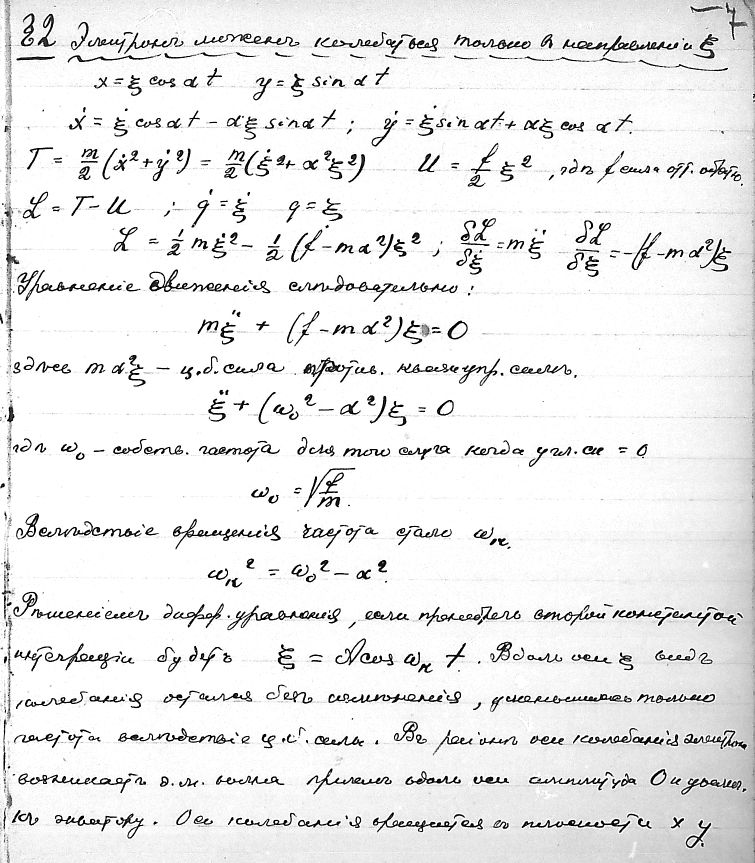 — 7
32 Электронъ можетъ колебаться только в направленіи ξ
x = ξ cos αt y = ξ sin αt
ẋ = ξ̇ cos αt − αξ sin αt ; ẏ = ξ̇ sin αt + αξ cos αt.
T = m/2 (ẋ² + ẏ²) = m/2 (ξ̇² + α²ξ²) U = f/2 ξ² , гдѣ f сила
L = T − U ; q̇ = ξ̇ q = ξ
L = ½ mξ̇² − ½ (f − mα²)ξ² ; δL/δξ̇ = mξ̈ δL/δξ = −(f − mα²)ξ
Уравненіе движенія слѣдовательно:
mξ̈ + (f − mα²)ξ = 0
здѣсь mα²ξ − ц.б. сила против. квазиупр. силѣ.
ξ̈ + (ω₀² − α²)ξ = 0
гдѣ ω₀ − собств. частота для того случая когда угл. ск = 0
ω₀ = √f/m
Вслѣдствіе вращенія частота стала ωₙ.
ωₙ² = ω₀² − α².
Рѣшеніемъ дифер. уравненія, если пренебречь второй константой
интеграціи будетъ ξ = A cos ωₙ t. Вдоль оси ξ видъ
колебанія остался безъ измѣненія, уменьшилась только
частота вслѣдствіе ц.б. силы. Въ районѣ оси колебанія электрона
возникаетъ э.м. волна причемъ вдоль оси амплитуда 0 и увелич.
къ экватору. Ось колебанія вращается в плоскости x y